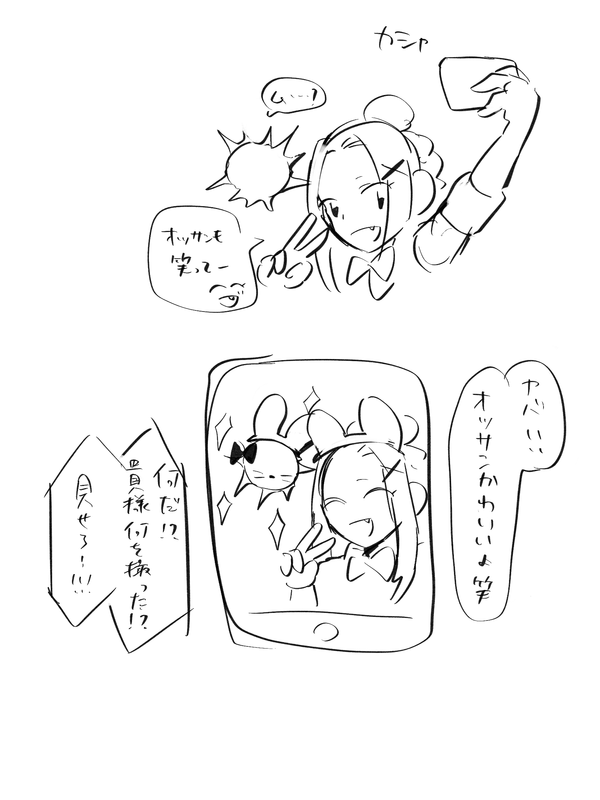 カシャ
ム…?
オッサンも
笑ってー
ヤベぃぃ
オッサンかわいいよ笑
何だ!?
貴様何を撮った!?
見せろー!!!